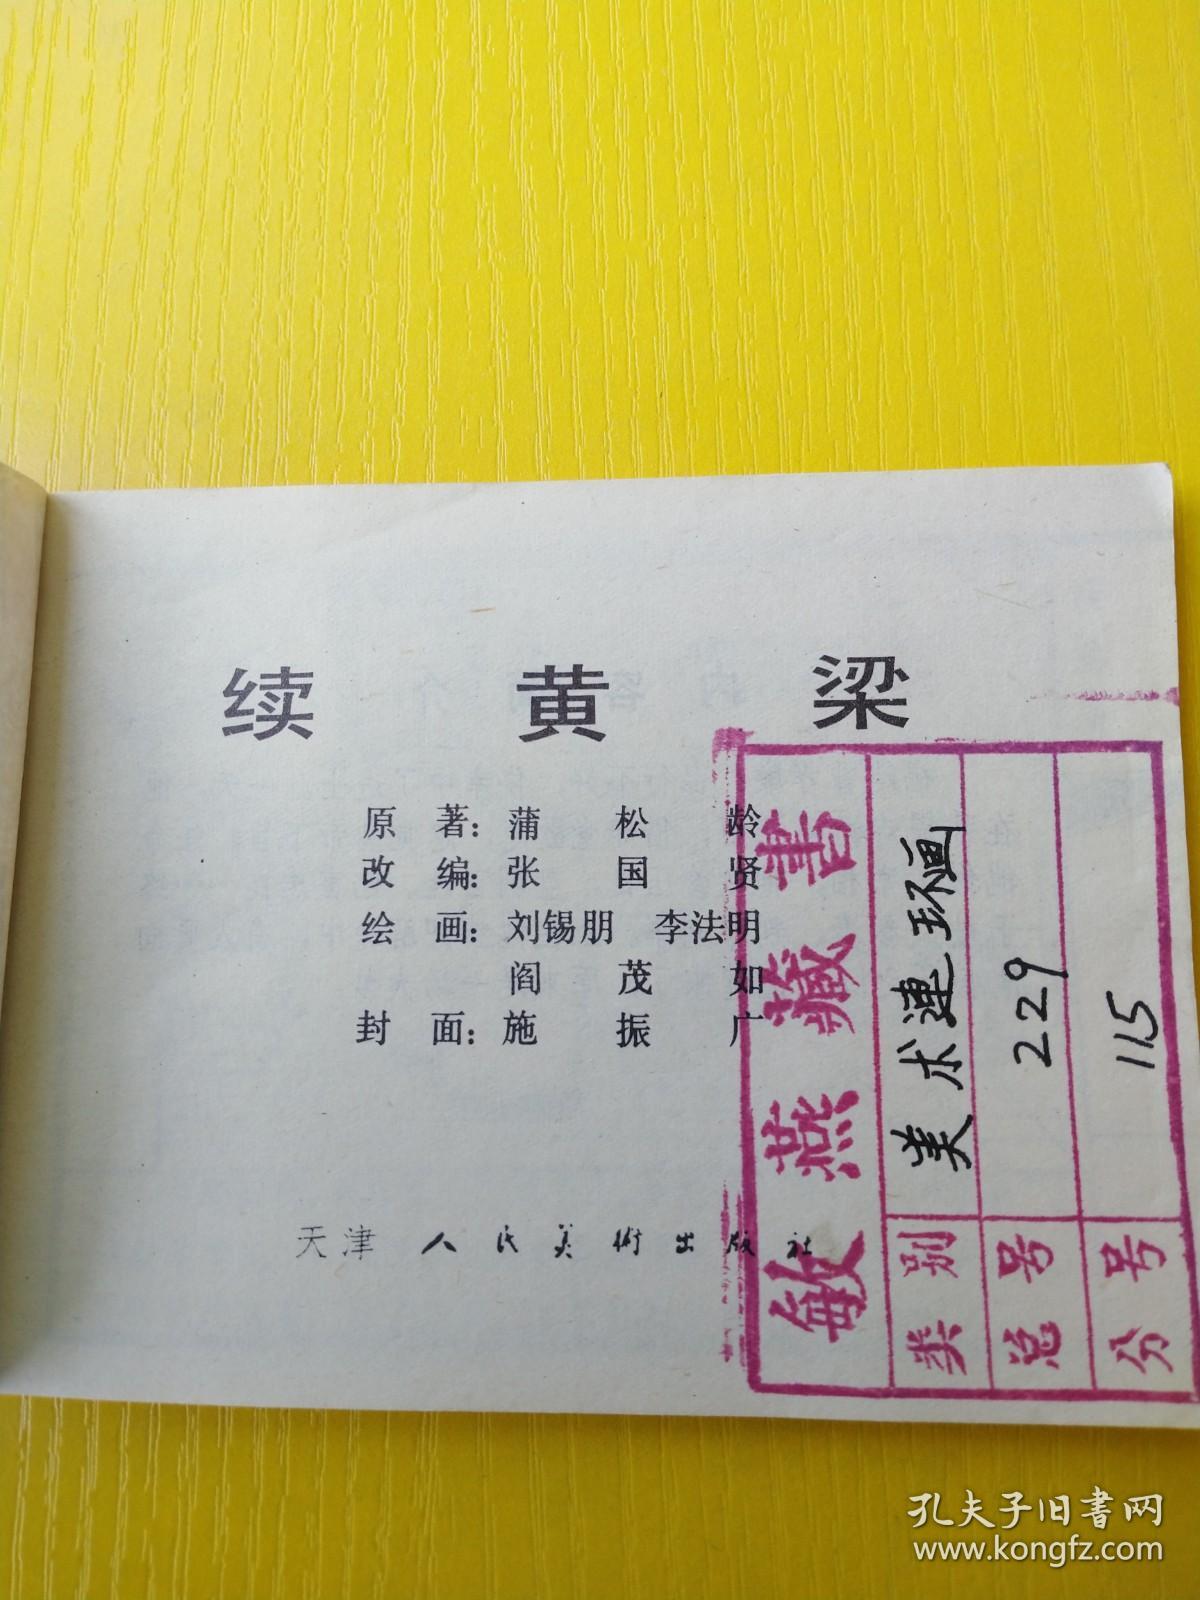 续黄梁
原著：蒲松龄
改编：张国贤
绘画：刘锡朋 李法明
阎茂如
封面：施振广
天津人民美術出版社
敏燕藏書
类别 美术連环画
总号 229
分号 115
孔夫子旧書网
www.kongfz.com